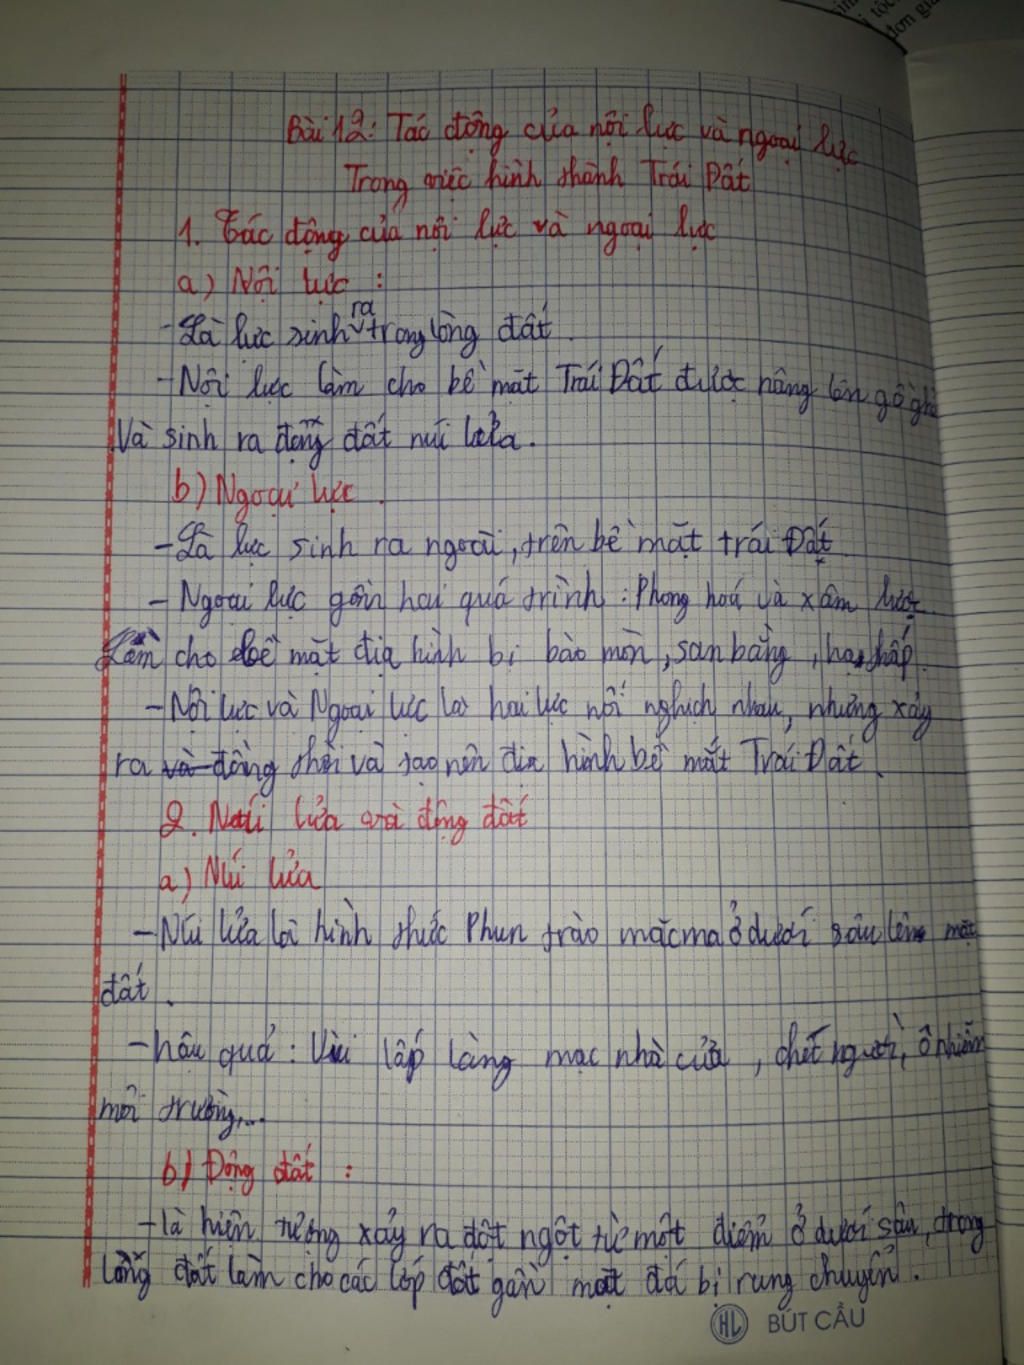 đơn giả
Bài 12: Tác động của nội lực và ngoại lực
Trong việc hình thành Trái Đất
1. Tác động của nội lực và ngoại lực
a) Nội lực :
- Là lực sinh ra trong lòng đất.
- Nội lực làm cho bề mặt Trái Đất được nâng lên gồ ghề
Và sinh ra động đất núi lửa.
b) Ngoại lực.
- Là lực sinh ra ngoài, trên bề mặt trái Đất
- Ngoại lực gồm hai quá trình : Phong hoá và xâm lược
Làm cho bề mặt địa hình bị bào mòn, san bằng, hạ thấp.
- Nội lực và Ngoại lực là hai lực nối nghịch nhau, nhưng xảy
ra và đồng thời và tạo nên địa hình bề mắt Trái Đất.
2. Núi lửa và động đất
a) Núi lửa
- Núi lửa là hình thức Phun trào mắcma ở dưới sâu lên mặt
đất.
- hậu quả : Vùi lấp làng mạc nhà cửa, chết người, ô nhiễm
môi trường,...
b) Động đất :
- là hiện tượng xảy ra đột ngột từ một điểm ở dưới sâu, trong
lòng đất làm cho các lớp đất gần mặt đá bị rung chuyển.
HL BÚT CẦU